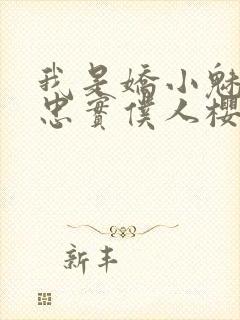 我是嬌小魅
忠實僕人櫻
新丰